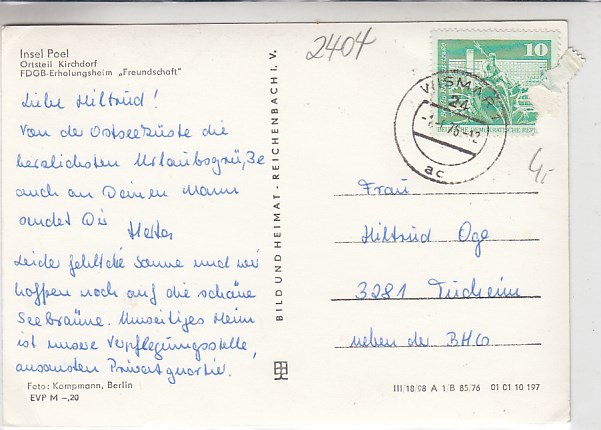 Insel Poel
Ortsteil Kirchdorf
FDGB-Erholungsheim „Freundschaft"
2404
Liebe Hiltrud!
Von der Ostseeküste die
herzlichsten Urlaubsgrüße
auch an Deinen Mann
sendet Dir
Leider fehlt die Sonne und wir
hoffen noch auf die schöne
Seebräune. Umseitiges Heim
ist unsere Verpflegungsstelle,
ansonsten Privatquartier.
Foto: Kampmann, Berlin
EVP M –,20
BILD UND HEIMAT · REICHENBACH I. V.
10
DEUTSCHE DEMOKRATISCHE REPUBLIK
WISMAR 1
24
ac
Frau
Hiltrud Oge
3281 Tucheim
neben der BHG
III/18/98 A 1/B 85/76 01 01 10 197